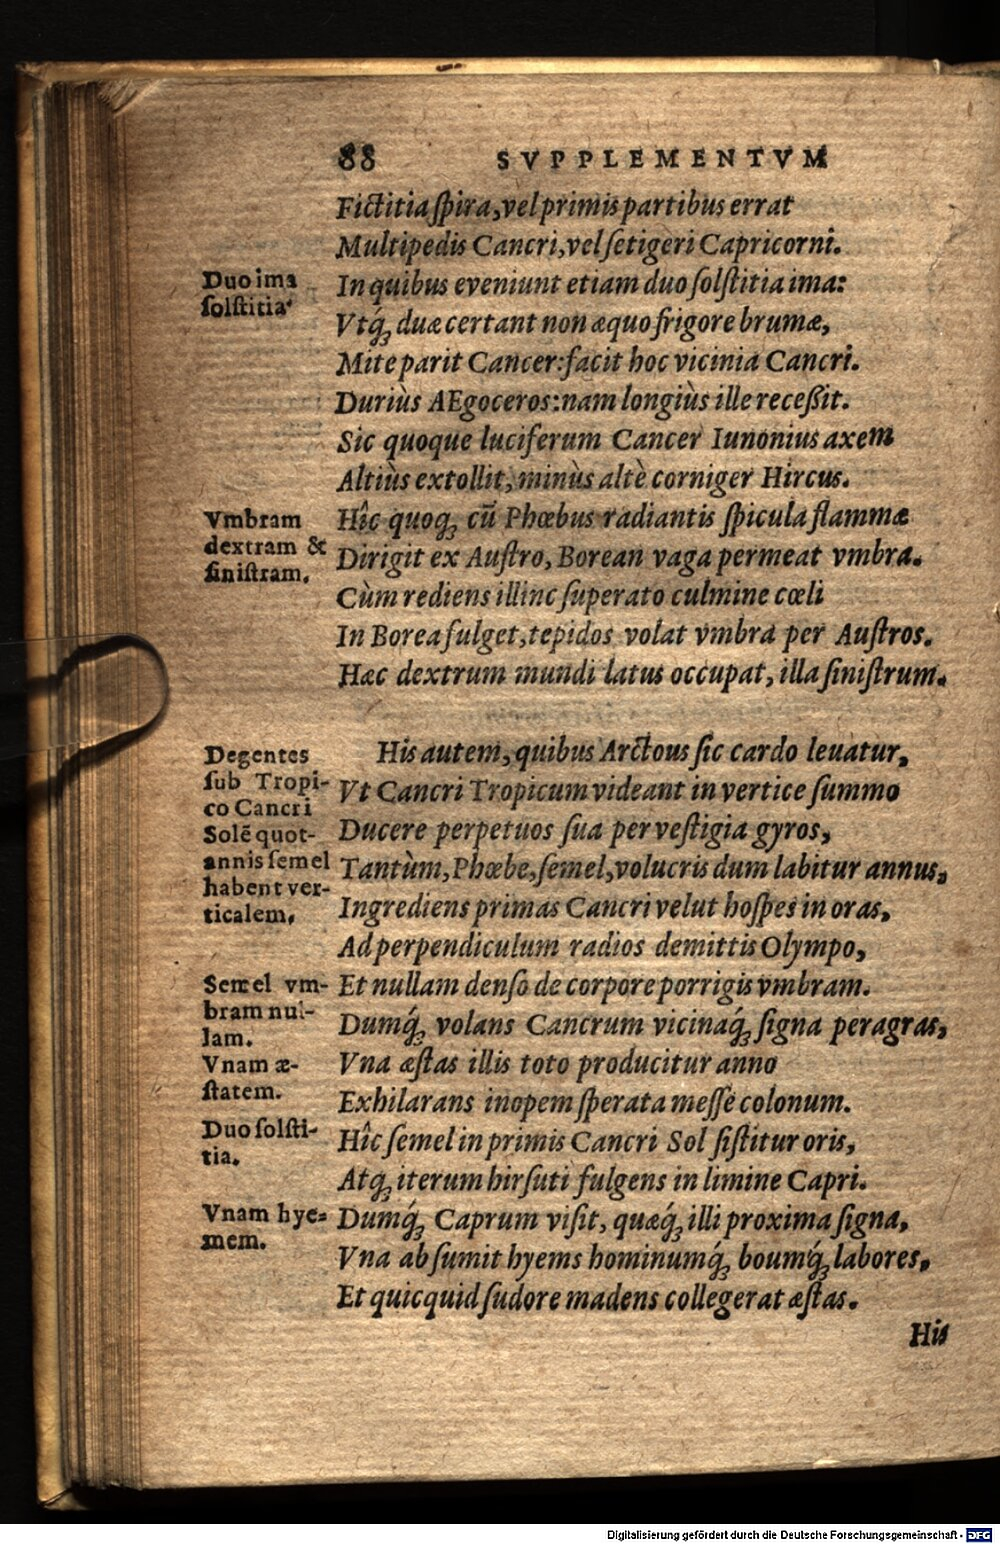 88 SVPPLEMENTVM
Fictitia ſpira, vel primis partibus errat
Multipedis Cancri, vel ſetigeri Capricorni.
Duo ima
ſolſtitia
In quibus eveniunt etiam duo ſolſtitia ima:
Vtq́ꝫ duæ certant non æquo frigore brumæ,
Mite parit Cancer: facit hoc vicinia Cancri.
Duriùs AEgoceros: nam longiùs ille receßit.
Sic quoque luciferum Cancer Iunonius axem
Altiùs extollit, minùs altè corniger Hircus.
Vmbram
dextram &
ſiniſtram.
Hîc quoqꝫ cũ Phœbus radiantis ſpicula flammæ
Dirigit ex Auſtro, Borean vaga permeat vmbra.
Cùm rediens illinc ſuperato culmine cœli
In Borea fulget, tepidos volat vmbra per Auſtros.
Hæc dextrum mundi latus occupat, illa ſiniſtrum.
Degentes
ſub Tropi-
co Cancri
Solẽ quot-
annis ſemel
habent ver-
ticalem,
His autem, quibus Arctous ſic cardo leuatur,
Vt Cancri Tropicum videant in vertice ſummo
Ducere perpetuos ſua per veſtigia gyros,
Tantùm, Phœbe, ſemel, volucris dum labitur annus,
Ingrediens primas Cancri velut hoſpes in oras,
Ad perpendiculum radios demittis Olympo,
Semel vm-
bram nul-
lam.
Et nullam denſo de corpore porrigis vmbram.
Dumq́ꝫ volans Cancrum vicinaq́ꝫ ſigna peragras,
Vnam æ-
ſtatem.
Vna æſtas illis toto producitur anno
Exhilarans inopem ſperata meſſe colonum.
Duo ſolſti-
tia.
Hîc ſemel in primis Cancri Sol ſiſtitur oris,
Atqꝫ iterum hirſuti fulgens in limine Capri.
Vnam hye-
mem.
Dumq́ꝫ Caprum viſit, quæq́ꝫ illi proxima ſigna,
Vna abſumit hyems hominumq́ꝫ boumq́ꝫ labores,
Et quicquid ſudore madens collegerat æſtas.
His
Digitalisierung gefördert durch die Deutsche Forschungsgemeinschaft - DFG